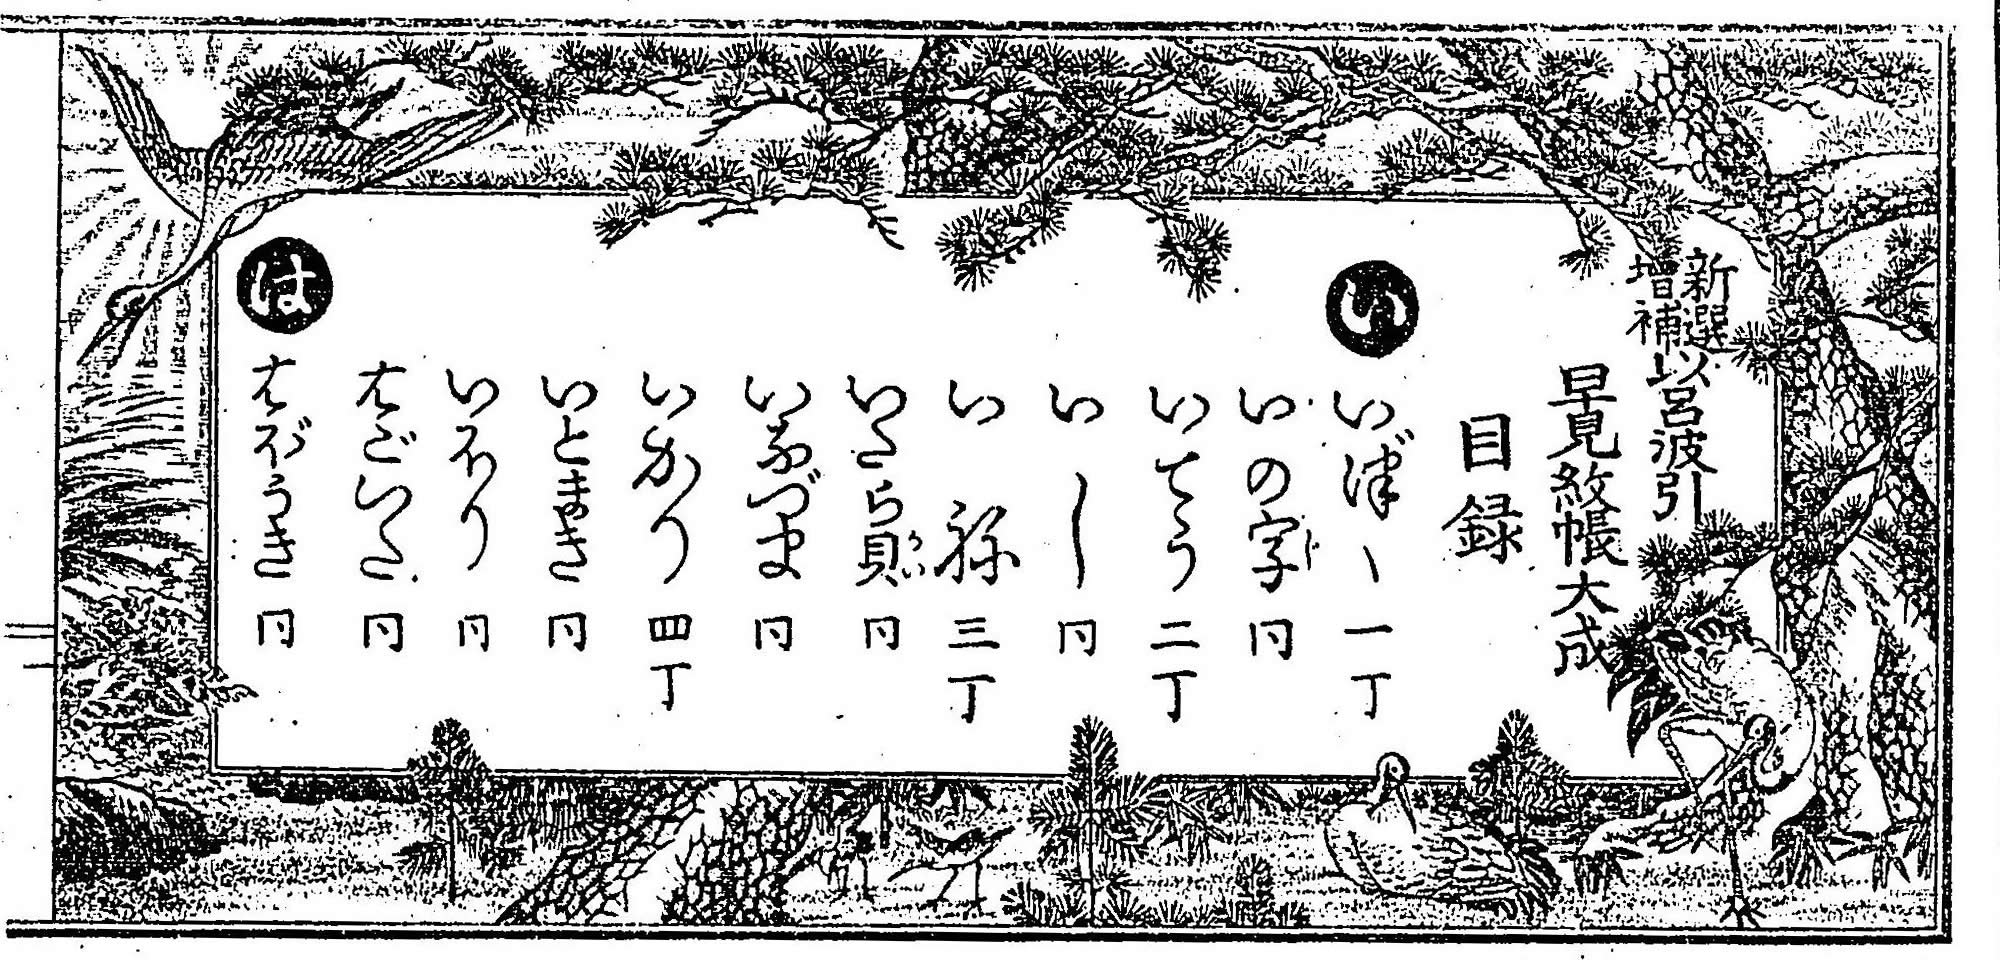 新選
増補
以呂波引
早見紋帳大成
目録
い
いづゝ 一丁
いの字 同
いてう 二丁
いし 同
いね 三丁
いたら貝 同
いなづま 同
いかり 四丁
いとまき 同
いほり 同
は
はごいた 同
はぼうき 同